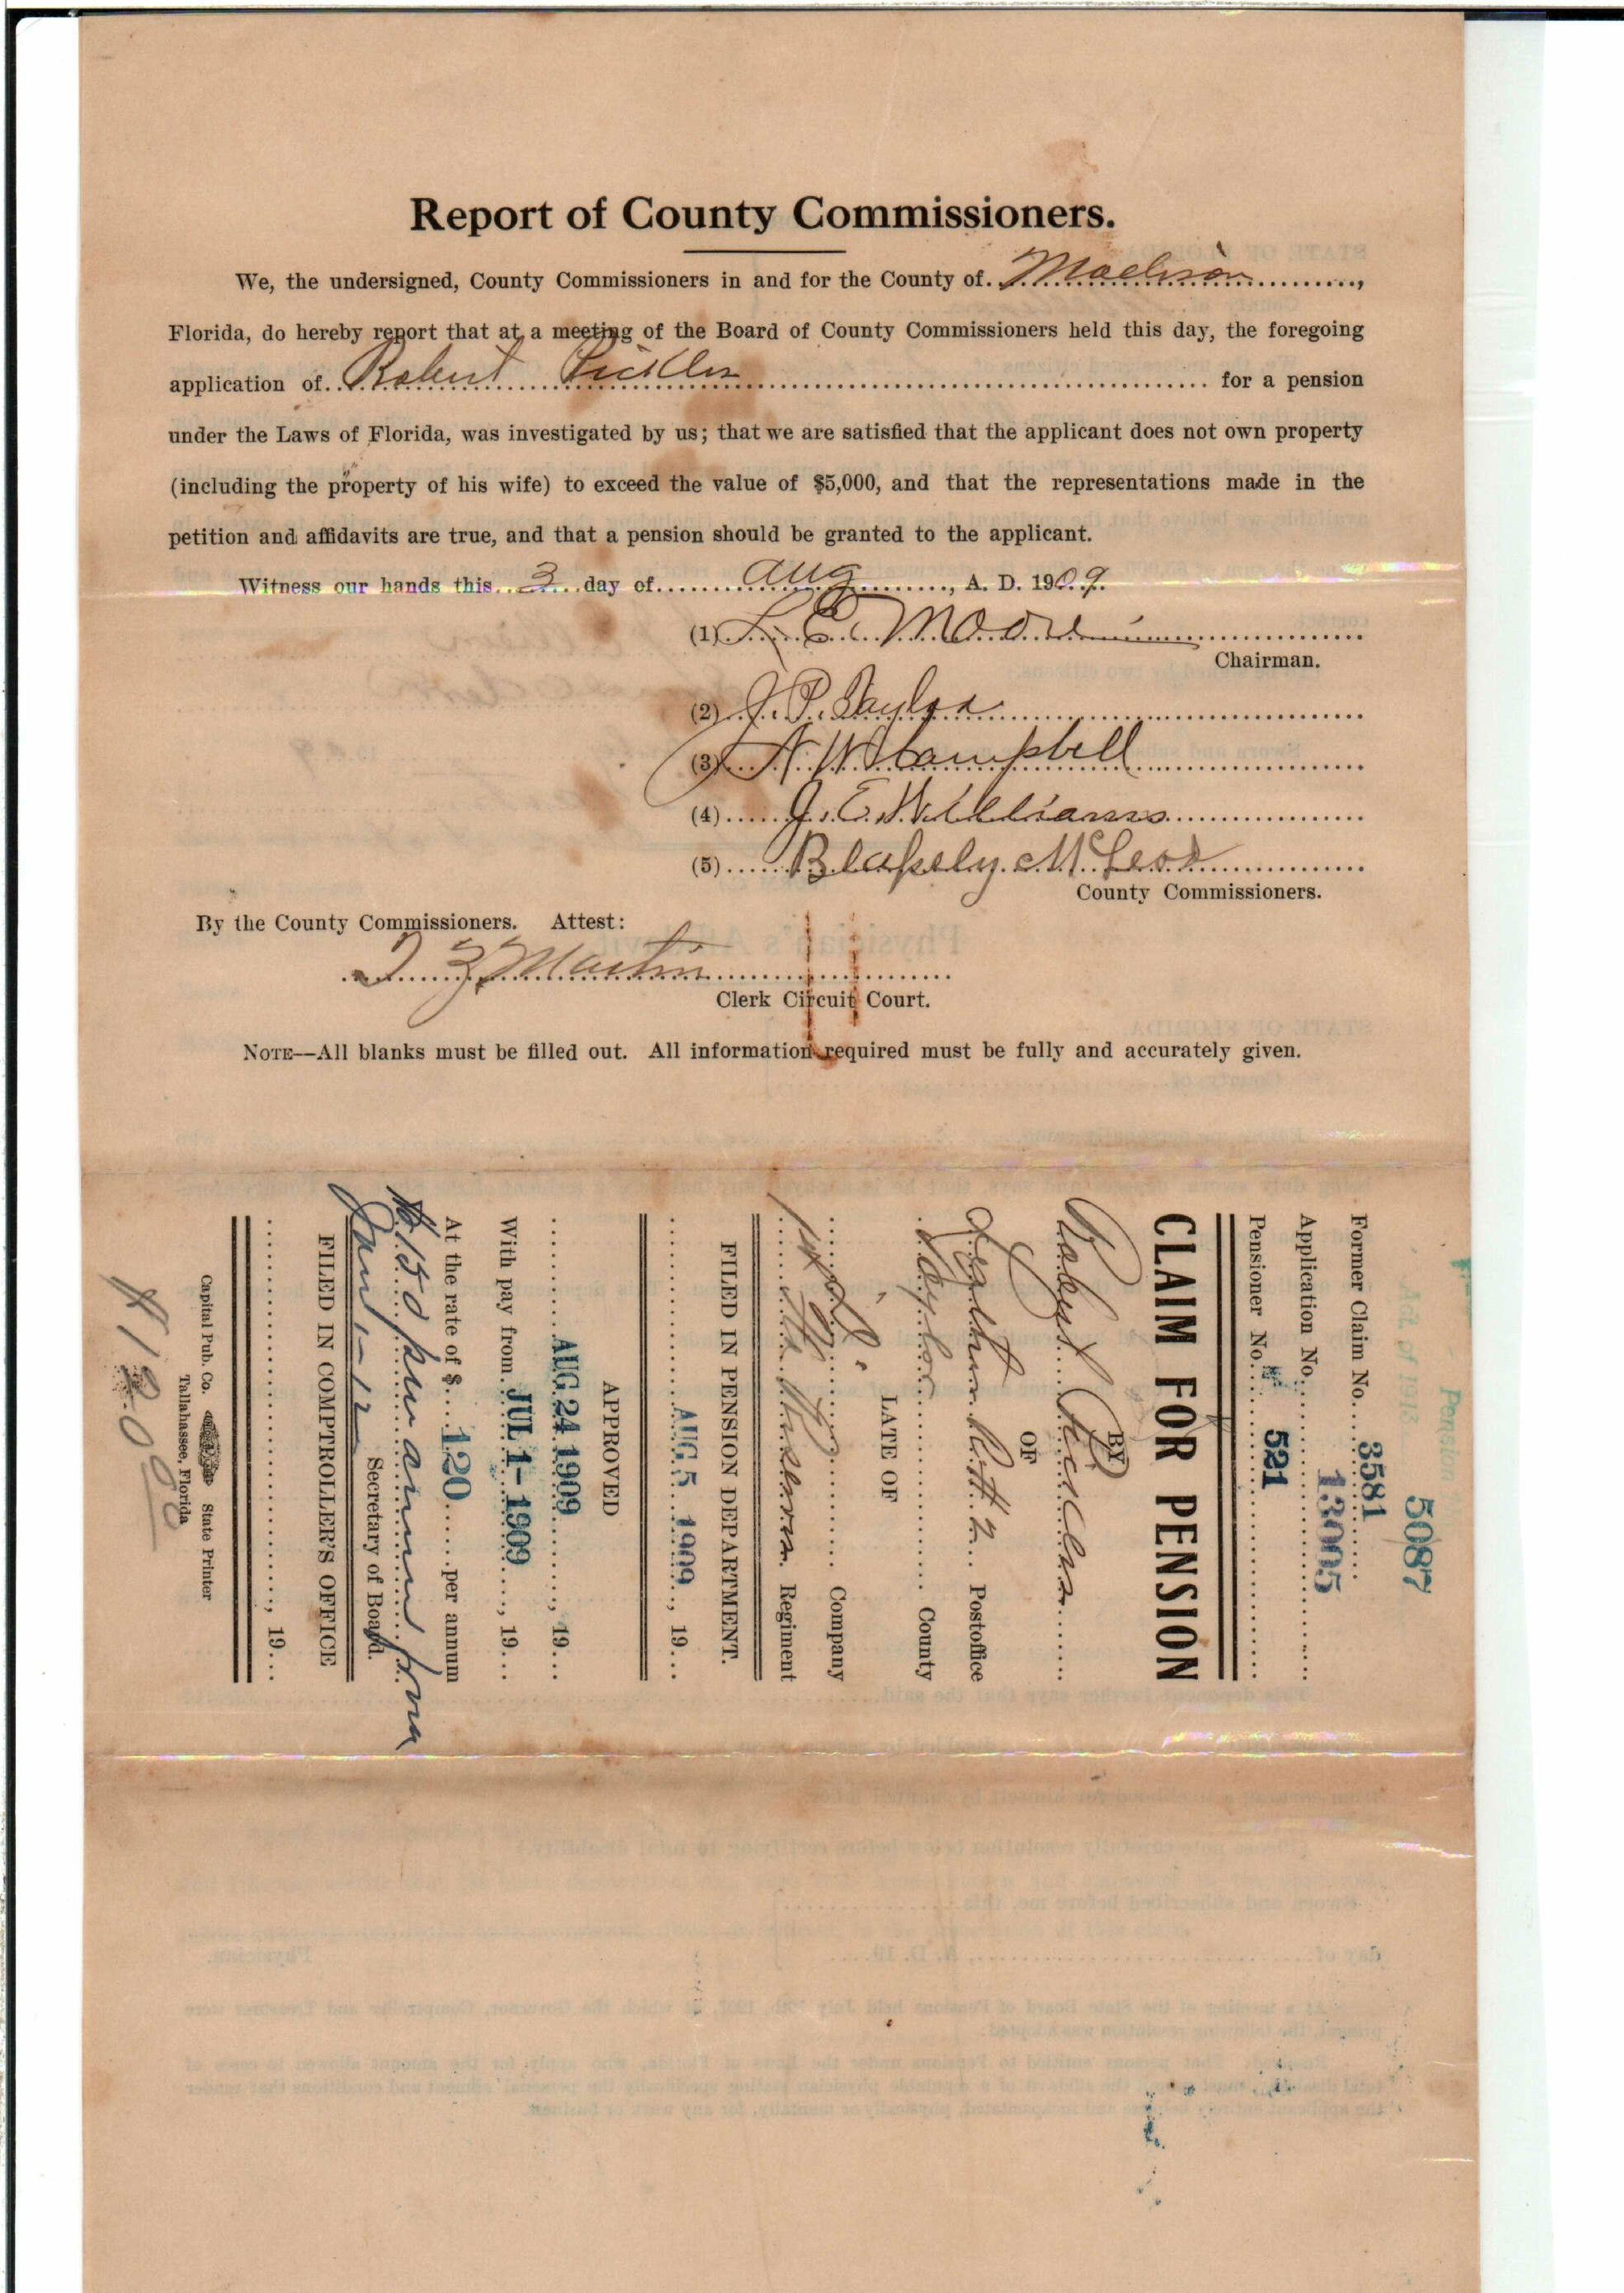 Report of County Commissioners.
We, the undersigned, County Commissioners in and for the County of Madison,
Florida, do hereby report that at a meeting of the Board of County Commissioners held this day, the foregoing
application of Robert Pickles for a pension
under the Laws of Florida, was investigated by us; that we are satisfied that the applicant does not own property
(including the property of his wife) to exceed the value of $5,000, and that the representations made in the
petition and affidavits are true, and that a pension should be granted to the applicant.
Witness our hands this 3 day of aug, A. D. 1909.
(1) L. E. Moore
Chairman.
(2) J. P. Taylor
(3) N. W. Campbell
(4) J. E. Williams
(5) Blakely McLeod
County Commissioners.
By the County Commissioners. Attest:
Martin
Clerk Circuit Court.
NOTE—All blanks must be filled out. All information required must be fully and accurately given.
Penson
Act of 1913
5087
Former Claim No. 3581
Application No. 13005
Pensioner No. 521
CLAIM FOR PENSION
BY
Robert Pickles
OF
Postoffice
Taylor County
LATE OF
Company
Regiment
FILED IN PENSION DEPARTMENT.
AUG 5 1909, 19
APPROVED
AUG 24 1909, 19
With pay from JUL 1- 1909, 19
At the rate of $ 120 per annum
$150 per annum from
Jan 1-12
Secretary of Board.
FILED IN COMPTROLLER'S OFFICE
, 19
Capital Pub. Co. State Printer
Tallahassee, Florida